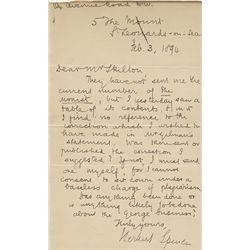 Avenue Road N.W.
5 The Mount
St Leonards-on-Sea
Feb. 3, 1894
Dear Mr Skilton,
They have not sent me the
current number of the
Monist, but I yesterday saw a
table of its contents & in it
I find no reference to the
correction which I wished to
have made in Mr Gilman's
statement. Was there sent or
published the correction I
suggested? If not, I must send
one myself, for I cannot
consent to sit down under a
baseless charge of plagiarism
Has anything been done or
is anything likely to be done
about the George business?
Truly yours,
Herbert Spencer